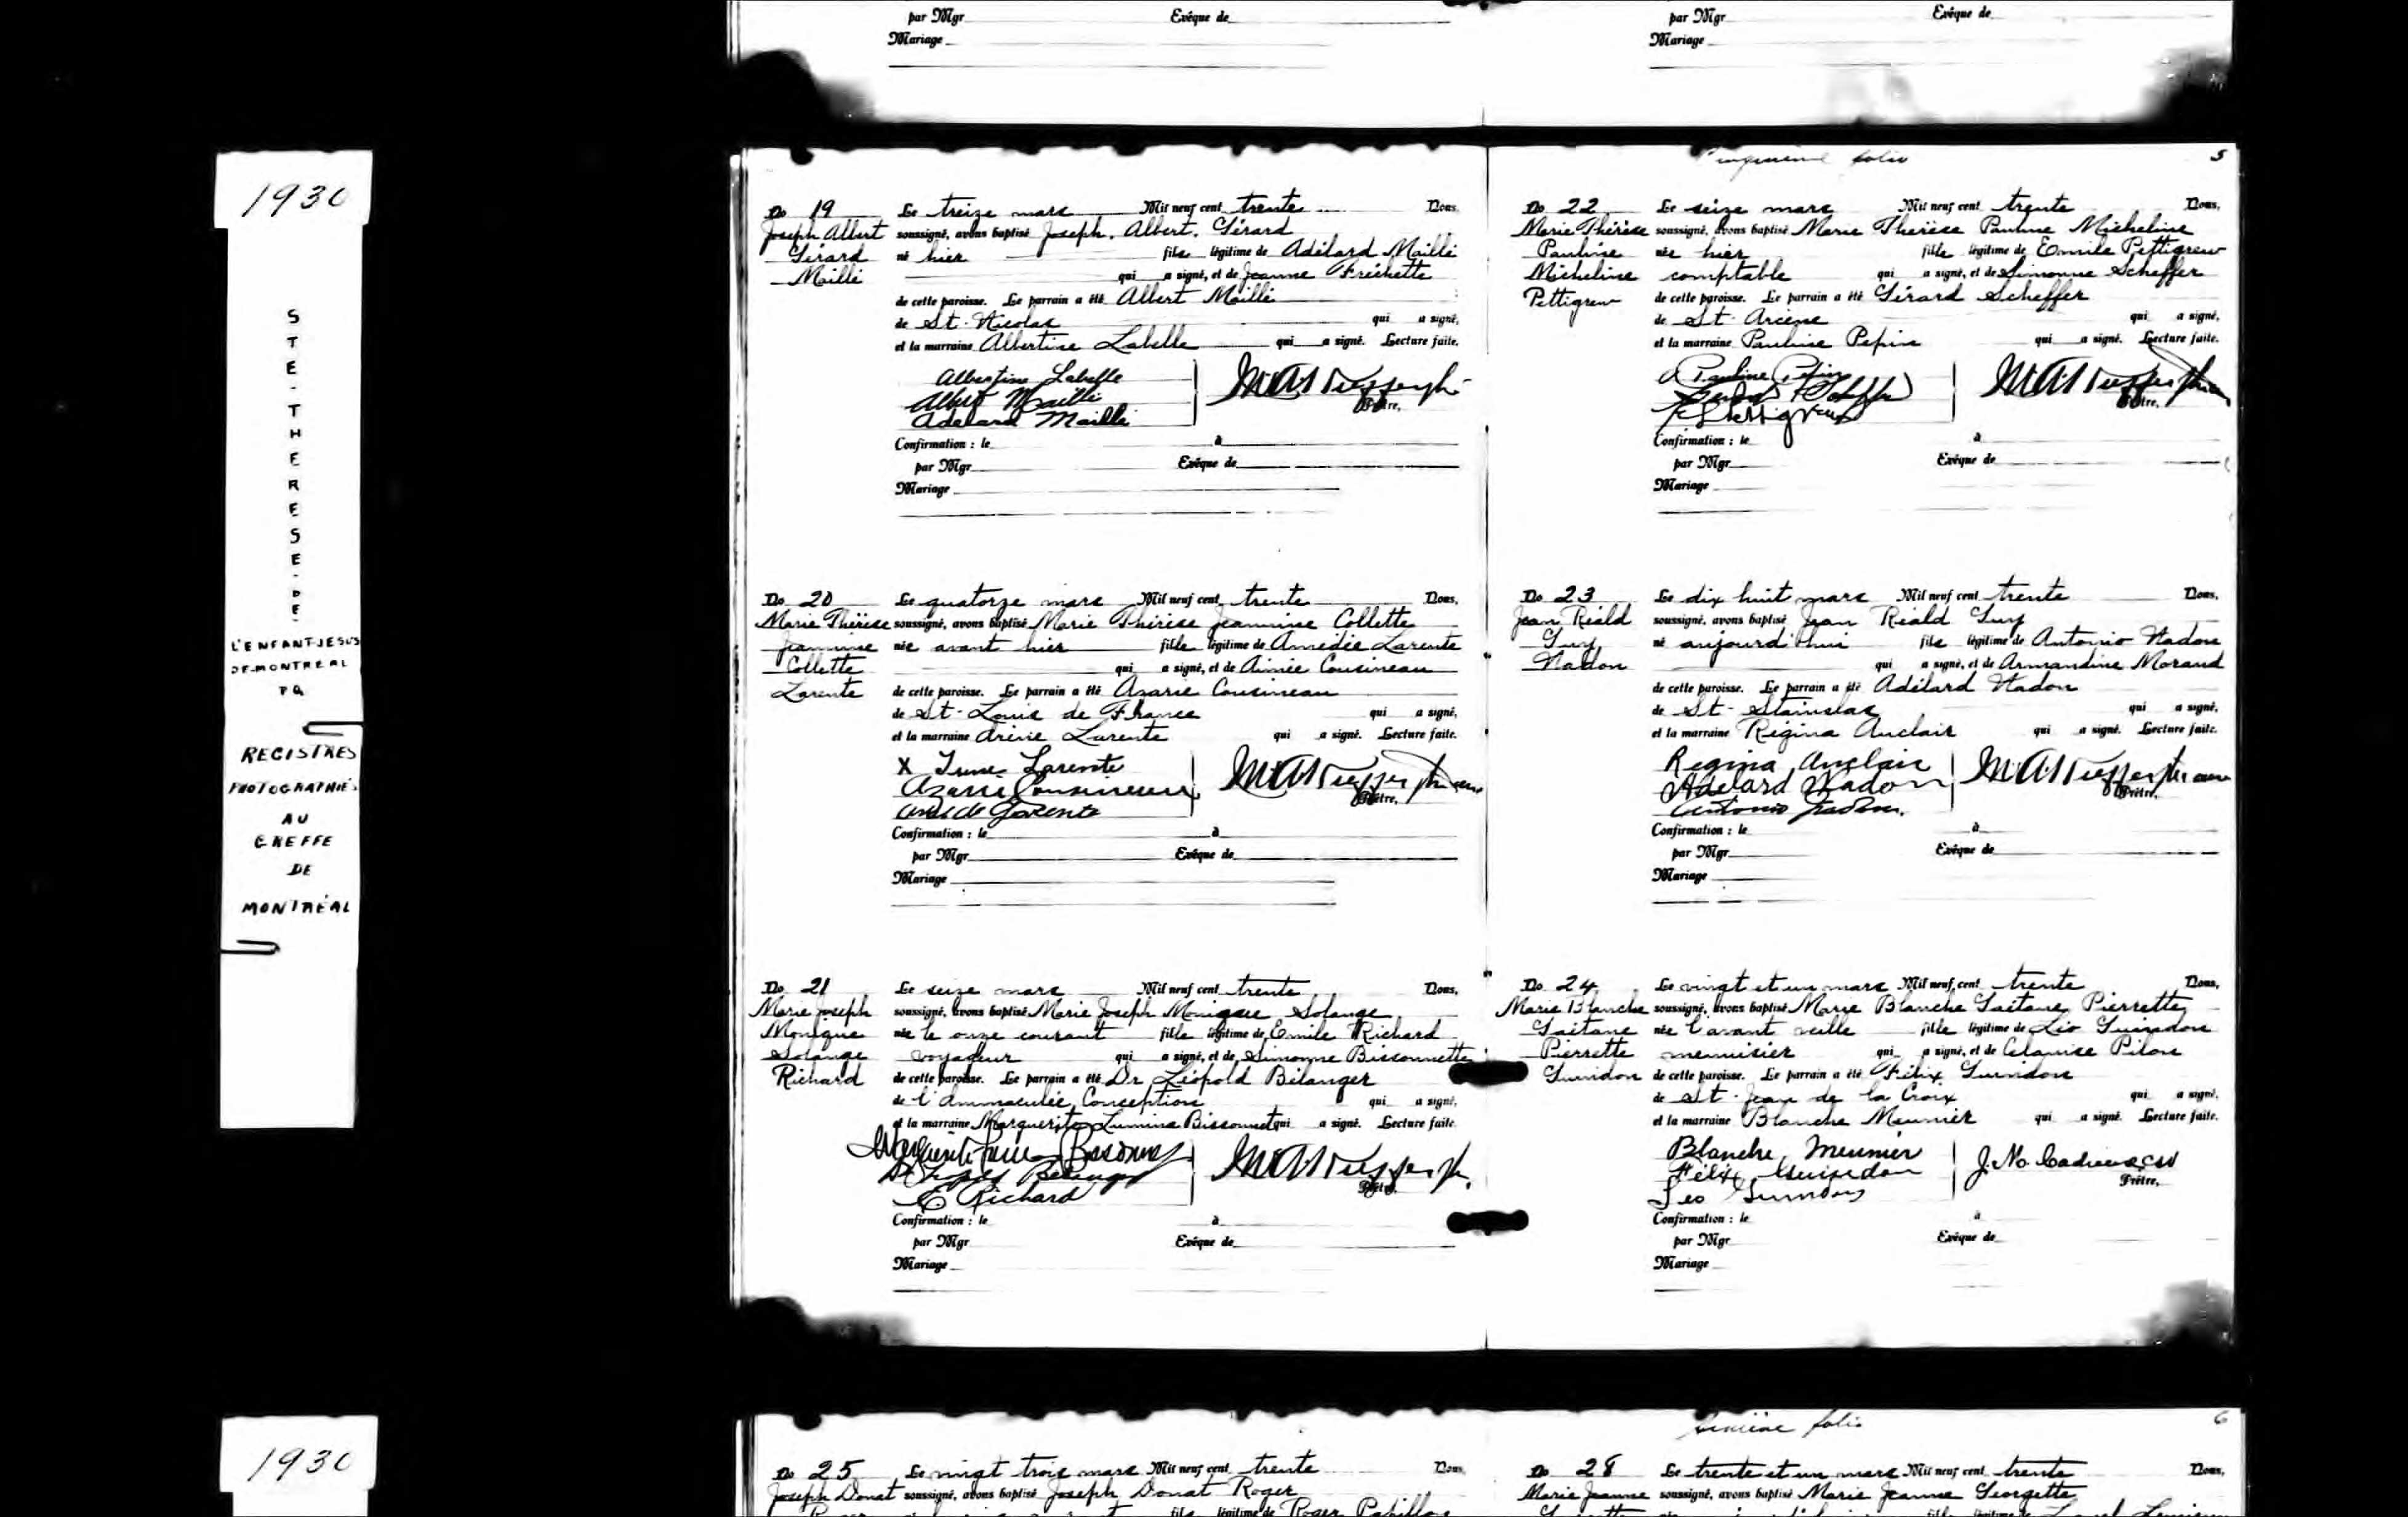 par Mgr Evêque de
Mariage
par Mgr Evêque de
Mariage
1930
STE-THERESE-DE-
L'ENFANT-JESUS
DE-MONTREAL
P Q
REGISTRES
PHOTOGRAPHIÉS
AU
GREFFE
DE
MONTRÉAL
No 19 Le treize mars Mil neuf cent trente Nous,
Joseph Albert soussigné, avons baptisé Joseph, Albert, Gérard
Gérard né hier fils légitime de Adélard Maillé
Maillé qui a signé, et de Jeanne Fréchette
de cette paroisse. Le parrain a été Albert Maillé
de St-Nicolas qui a signé,
et la marraine Albertine Labelle qui a signé. Lecture faite.
Albertine Labelle
Albert Maillé
Adelard Maillé
Prêtre,
Confirmation : le à
par Mgr Evêque de
Mariage
No 20 Le quatorze mars Mil neuf cent trente Nous,
Marie Thérèse soussigné, avons baptisé Marie Thérèse Jeannine Collette
Jeannine née avant hier fille légitime de Amédée Larente
Collette qui a signé, et de Aimée Cousineau
Larente de cette paroisse. Le parrain a été Azarie Cousineau
de St-Louis de France qui a signé,
et la marraine Irène Larente qui a signé. Lecture faite.
X Irene Larente
Azarie Cousineau
Larente
Prêtre,
Confirmation : le à
par Mgr Evêque de
Mariage
No 21 Le seize mars Mil neuf cent trente Nous,
Marie Joseph soussigné, avons baptisé Marie Joseph Monique Solange
Monique née le onze courant fille légitime de Emile Richard
Solange voyageur qui a signé, et de Simonne Bissonnette
Richard de cette paroisse. Le parrain a été Dr Léopold Bélanger
de l'Immaculée Conception qui a signé,
et la marraine Marguerite Lumina Bissonnet qui a signé. Lecture faite.
E Richard
Prêtre,
Confirmation : le à
par Mgr Evêque de
Mariage
folio 5
No 22 Le seize mars Mil neuf cent trente Nous,
Marie Thérèse soussigné, avons baptisé Marie Thérèse Pauline Micheline
Pauline née hier fille légitime de Emile Pettigrew
Micheline comptable qui a signé, et de Simonne Scheffer
Pettigrew de cette paroisse. Le parrain a été Gérard Scheffer
de St-Arsène qui a signé,
et la marraine Pauline Pepin qui a signé. Lecture faite.
Pauline Pepin
Prêtre,
Confirmation : le à
par Mgr Evêque de
Mariage
No 23 Le dix huit mars Mil neuf cent trente Nous,
Jean Réald soussigné, avons baptisé Jean Réald Guy
Guy né aujourd'hui fils légitime de Antonio Nadon
Nadon qui a signé, et de Armandine Morand
de cette paroisse. Le parrain a été Adélard Nadon
de St-Stanislas qui a signé,
et la marraine Régina Auclair qui a signé. Lecture faite.
Regina Auclair
Adelard Nadon
Antonio Nadon.
Prêtre,
Confirmation : le à
par Mgr Evêque de
Mariage
No 24 Le vingt et un mars Mil neuf cent trente Nous,
Marie Blanche soussigné, avons baptisé Marie Blanche Gaétane Pierrette
Gaétane née l'avant veille fille légitime de Léo Guindon
Pierrette menuisier qui a signé, et de Pilon
Guindon de cette paroisse. Le parrain a été Félix Guindon
de St-Jean de la Croix qui a signé,
et la marraine Blanche Meunier qui a signé. Lecture faite.
Blanche Meunier
Félix Guindon
Leo Guindon
Prêtre,
Confirmation : le à
par Mgr Evêque de
Mariage
1930
No 25 Le vingt trois mars Mil neuf cent trente Nous,
Joseph Donat soussigné, avons baptisé Joseph Donat Roger
Roger fils légitime de Roger Papillon
folio 6
No 28 Le trente et un mars Mil neuf cent trente Nous,
Marie Jeanne soussigné, avons baptisé Marie Jeanne Georgette